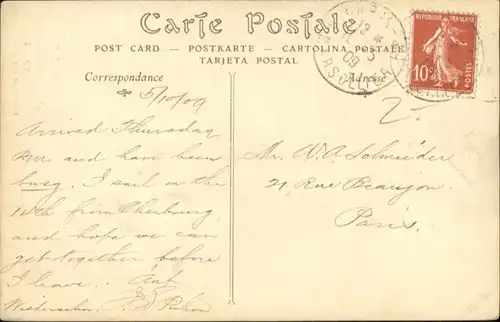 Carte Postale
POST CARD — POSTKARTE — CARTOLINA POSTALE
TARJETA POSTAL
Correspondance
Adresse
REPUBLIQUE FRANÇAISE
10c
POSTES
09
5/10/09
Arrived Thursday
and have been
busy. I sail on the
12th from Cherbourg
and hope we can
get together before
I leave.. Auf
Wiedersehn.
Mr. W. A. Schneider
21, Rue Beaujon
Paris.